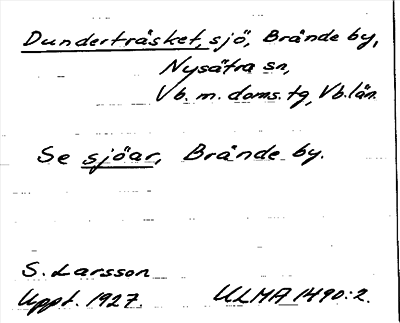 Dunderträsket, sjö, Brände by,
Nysätra sn,
Vb. m. doms. tg, Vb.län.
Se sjöar, Brände by.
S. Larsson
Uppt. 1927.
ULMA 1490:2.